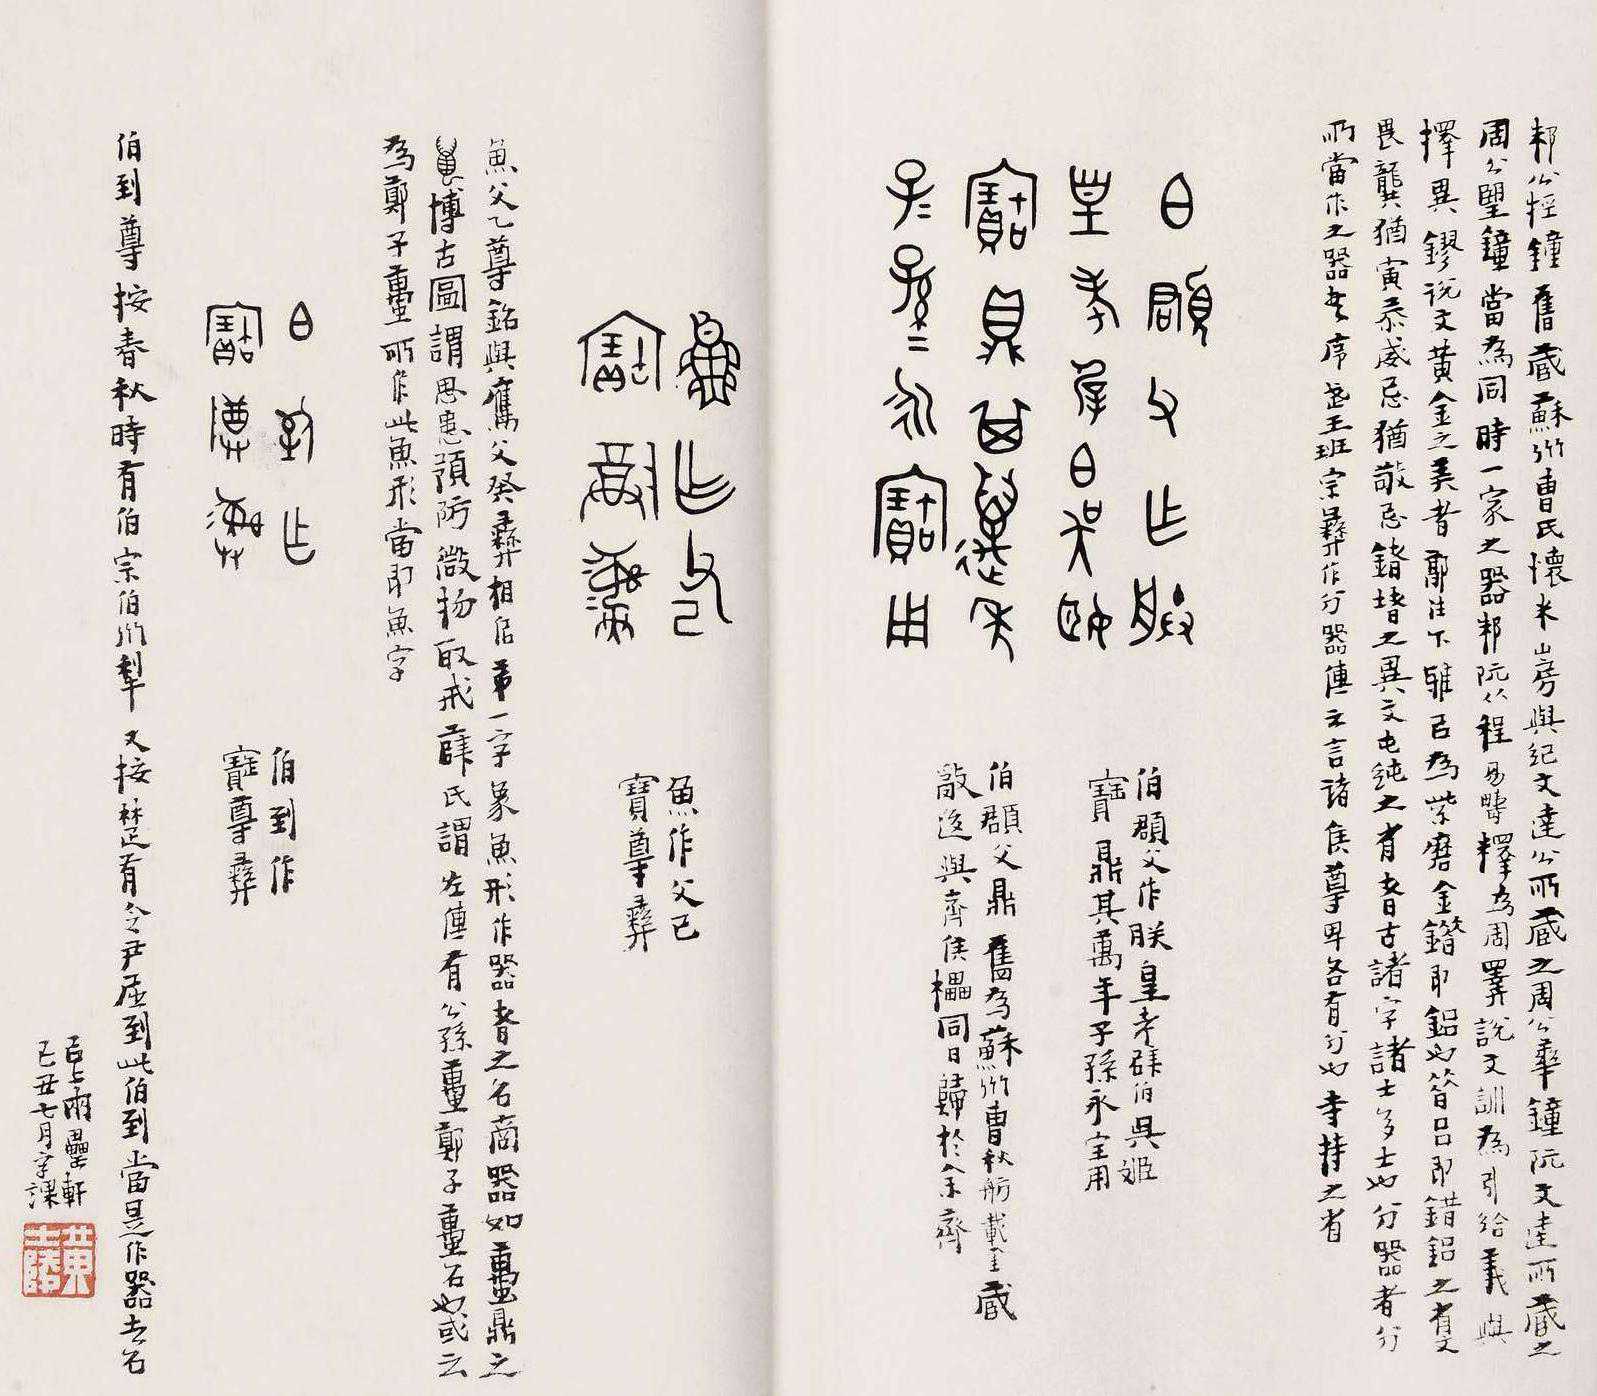 邾公牼鐘舊藏蘇州曹氏懷米山房與紀文達公所藏之周公華鐘阮文達所藏之
周公望鐘當為同時一家之器邾阮作程易疇釋為周睪說文訓為引給義與
擇異鏐說文黃金之美者郭注爾雅以為紫磨金鑥即鋁也簷呂即錯鋁之
畏龔猶寅恭威忌猶敬忌鍺堵之異文屯純之省者古諸字諸士多士也分器者分
所當作之器書序武王班宗彝作分器傳云言諸侯尊卑各有分也寺持之省
伯頵父作朕
皇考屖伯吳姬
寶鼎其萬年
子子孫孫永寶用
伯頵父作朕皇考屖伯吳姬
寶鼎其萬年子孫永寶用
伯頵父鼎舊為蘇州曹秋舫載奎藏
散後與齊侯櫑同日歸於余齋
魚作父己
寶尊彝
魚作父己
寶尊彝
魚父乙尊銘與鷹父癸彝相似第一字象魚形作器者之名商器如蠆鼎之
蠆博古圖謂思患預防微物取戒薛氏謂左傳有公孫蠆鄭子蠆名也或云
為鄭子蠆所作此魚形當即魚字
伯到作
寶尊彝
伯到作
寶尊彝
伯到尊按春秋時有伯宗伯州犁又按楚有令尹屈到此伯到當是作器者名
己丑七月字課
黃士陵